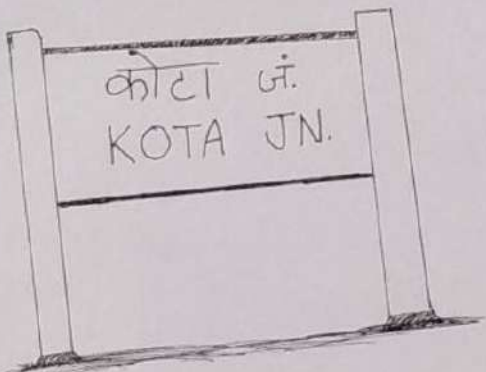 कोटा जं.
KOTA JN.